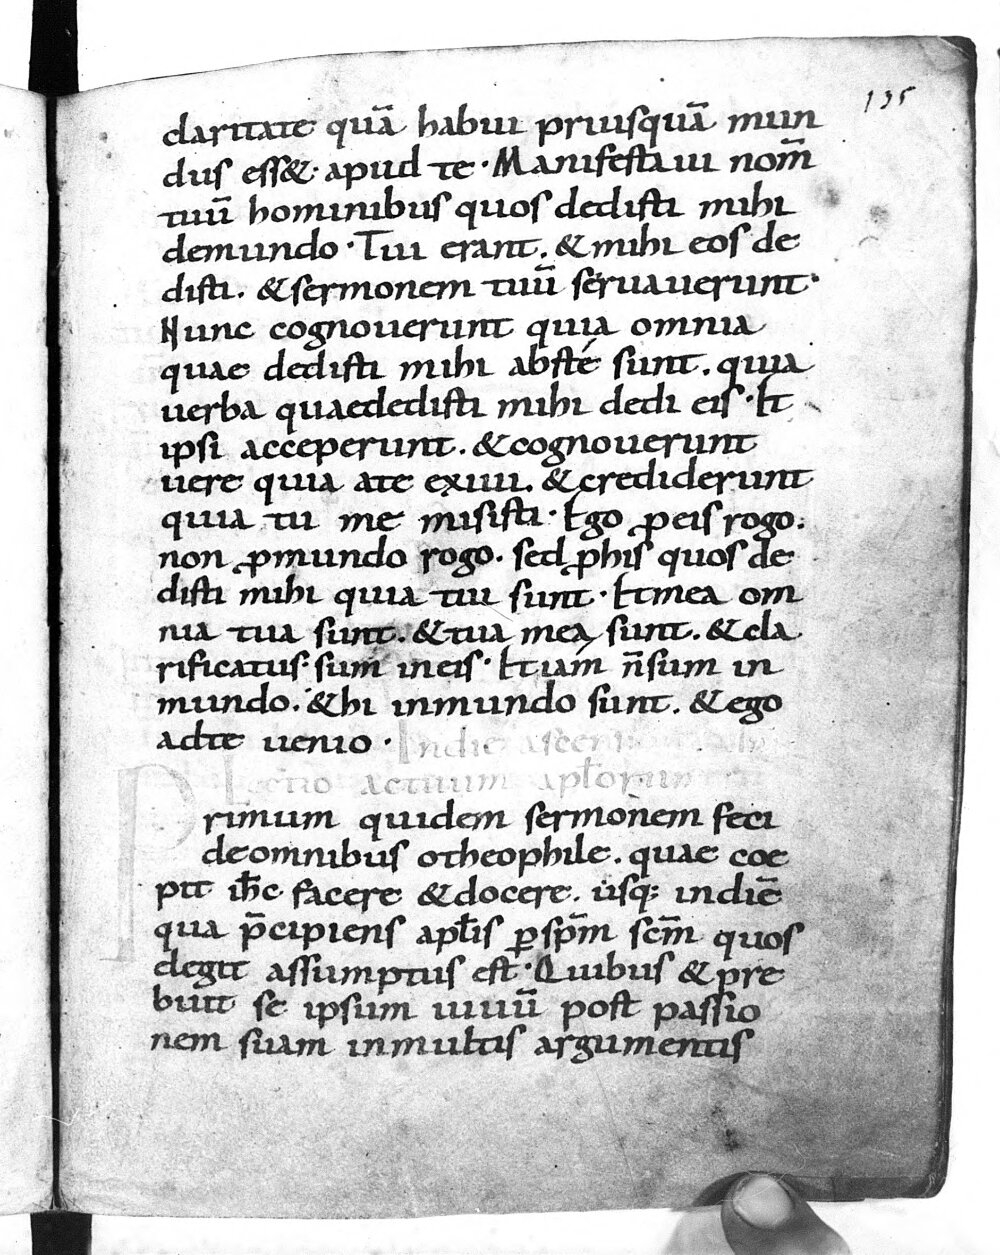 135
claritate quā habui priusquā mun
dus ess&· apud te· Manifestaui nom̄
tuū hominibus quos dedisti mihi
demundo· Tui erant. & mihi eos de
disti. & sermonem tuū seruauerunt·
Nunc cognouerunt quia omnia
quae dedisti mihi abste sunt. quia
uerba quaededisti mihi dedi eis· Et
ipsi acceperunt. & cognouerunt
uere quia ate exiui. & crediderunt
quia tu me misisti· Ego ꝓ eis rogo.
non ꝓmundo rogo. sed ꝓhis quos de
disti mihi quia tui sunt· Et mea om
nia tua sunt. & tua mea sunt. & cla
rificatus sum ineis· Et iam n̄ sum in
mundo. & hi inmundo sunt. & ego
adte uenio· In die ascen
Lectio actuum apłorum
Primum quidem sermonem feci
deomnibus otheophile. quae coe
pit ih̄c facere & docere. usq: indiē
qua p̄cipiens apłis ꝑ sp̄m sc̄m quos
elegit assumptus est· Quibus & pre
buit se ipsum uiuū post passio
nem suam inmultis argumentis